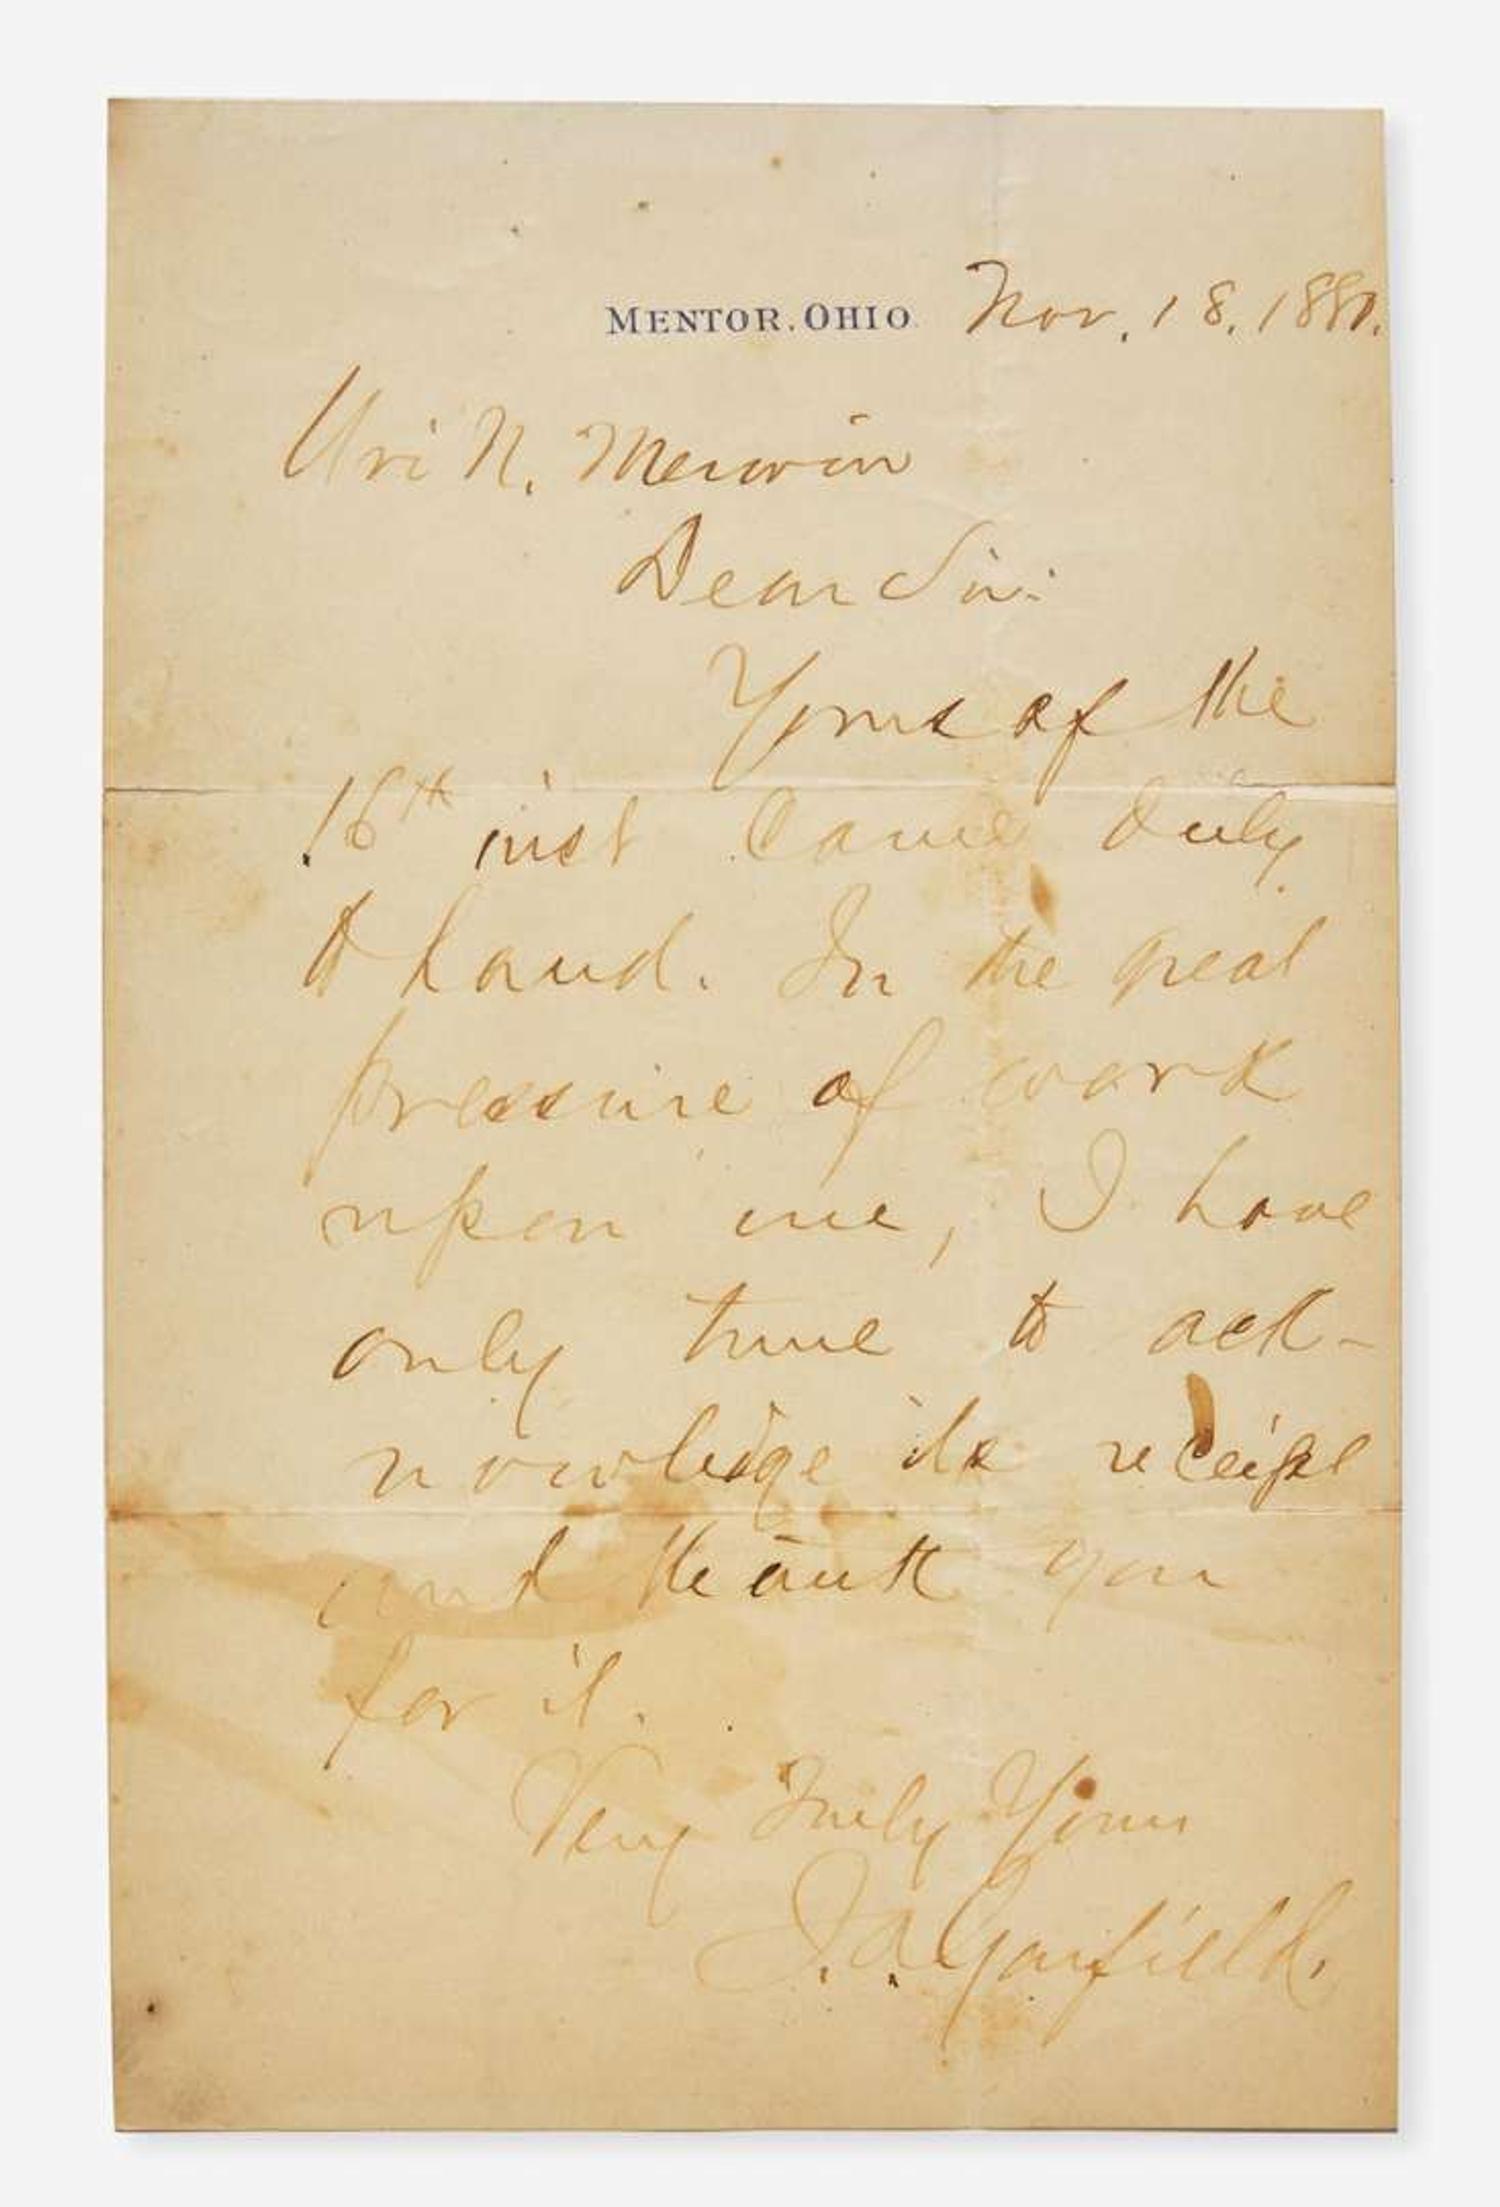 MENTOR, OHIO Nov. 18. 1880.
Uri N. Merwin
Dear Sir:
Yours of the
16th inst came duly
to hand. In the great
pressure of work
upon me, I have
only time to ack-
nowledge its receipt
and thank you
for it.
Very Truly Yours
J. A. Garfield.